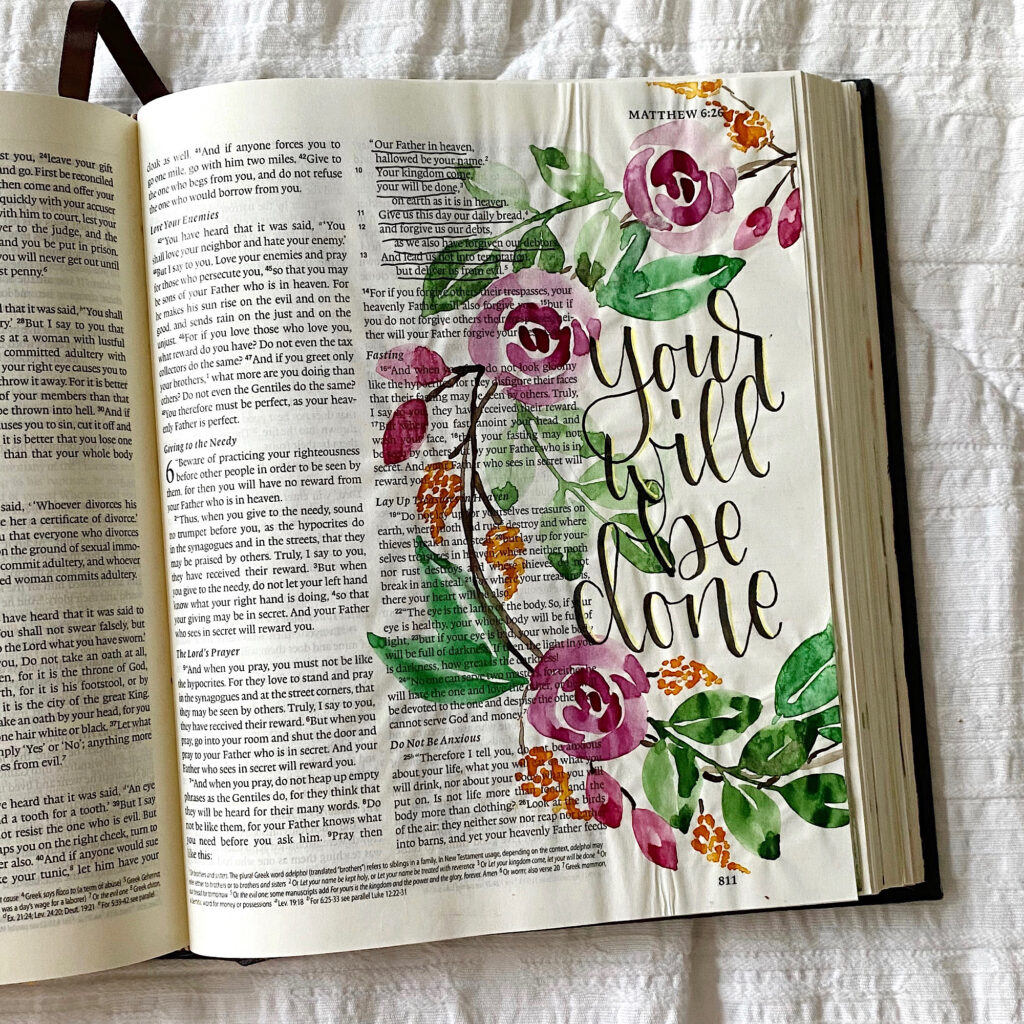 st you, ²⁴leave your gift
and go. First be reconciled
then come and offer your
quickly with your accuser
with him to court, lest your
ver to the judge, and the
and you be put in prison.
you will never get out until
st penny.⁶
d that it was said, ᵃ'You shall
ry.' ²⁸But I say to you that
s at a woman with lustful
committed adultery with
your right eye causes you to
throw it away. For it is better
of your members than that
be thrown into hell. ³⁰And if
auses you to sin, cut it off and
it is better that you lose one
than that your whole body
said, 'Whoever divorces his
e her a certificate of divorce.'
that everyone who divorces
on the ground of sexual immo-
commit adultery, and whoever
ed woman commits adultery.
have heard that it was said to
You shall not swear falsely, but
o the Lord what you have sworn.'
you, Do not take an oath at all,
en, for it is the throne of God,
rth, for it is his footstool, or by
it is the city of the great King.
ake an oath by your head, for you
ot one hair white or black. ³⁷Let what
mply 'Yes' or 'No'; anything more
es from evil.⁷
e heard that it was said, "An eye
d a tooth for a tooth.' ³⁹But I say
ot resist the one who is evil. But
ps you on the right cheek, turn to
er also. ⁴⁰And if anyone would sue
e your tunic,⁸ let him have your
MATTHEW 6:26
cloak as well. ⁴¹And if anyone forces you to
go one mile, go with him two miles. ⁴²Give to
the one who begs from you, and do not refuse
the one who would borrow from you.
Love Your Enemies
⁴³"You have heard that it was said, 'You
shall love your neighbor and hate your enemy.'
⁴⁴But I say to you, Love your enemies and pray
for those who persecute you, ⁴⁵so that you may
be sons of your Father who is in heaven. For
he makes his sun rise on the evil and on the
good, and sends rain on the just and on the
unjust. ⁴⁶For if you love those who love you,
what reward do you have? Do not even the tax
collectors do the same? ⁴⁷And if you greet only
your brothers,¹ what more are you doing than
others? Do not even the Gentiles do the same?
⁴⁸You therefore must be perfect, as your heav-
enly Father is perfect.
Giving to the Needy
6 "Beware of practicing your righteousness
before other people in order to be seen by
them, for then you will have no reward from
your Father who is in heaven.
²"Thus, when you give to the needy, sound
no trumpet before you, as the hypocrites do
in the synagogues and in the streets, that they
may be praised by others. Truly, I say to you,
they have received their reward. ³But when
you give to the needy, do not let your left hand
know what your right hand is doing, ⁴so that
your giving may be in secret. And your Father
who sees in secret will reward you.
The Lord's Prayer
⁵"And when you pray, you must not be like
the hypocrites. For they love to stand and pray
in the synagogues and at the street corners, that
they may be seen by others. Truly, I say to you,
they have received their reward. ⁶But when you
pray, go into your room and shut the door and
pray to your Father who is in secret. And your
Father who sees in secret will reward you.
⁷"And when you pray, do not heap up empty
phrases as the Gentiles do, for they think that
they will be heard for their many words. ⁸Do
not be like them, for your Father knows what
you need before you ask him. ⁹Pray then
like this:
"Our Father in heaven,
hallowed be your name.²
10 Your kingdom come,
your will be done,³
on earth as it is in heaven.
11 Give us this day our daily bread,⁴
12 and forgive us our debts,
as we also have forgiven our debtors.
13 And lead us not into temptation,
but deliver us from evil.⁵
¹⁴For if you forgive others their trespasses, your
heavenly Father will also forgive you, ¹⁵but if
you do not forgive others their trespasses, nei-
ther will your Father forgive your
Fasting
¹⁶"And when do not look gloomy
like the hypocrites, for they disfigure their faces
that their fasting may be seen by others. Truly,
I say to you, they have received their reward.
¹⁷But when you fast, anoint your head and
wash your face, ¹⁸that your fasting may not
be seen by others but by your Father who is in
secret. And your Father who sees in secret will
reward you.
Lay Up Treasures in Heaven
¹⁹"Do not lay up for yourselves treasures on
earth, where moth and rust destroy and where
thieves break in and steal, ²⁰but lay up for your-
selves treasures in heaven, where neither moth
nor rust destroys and where thieves do not
break in and steal. ²¹For where your treasure is,
there your heart will be also.
²²"The eye is the lamp of the body. So, if your
eye is healthy, your whole body will be full of
light, ²³but if your eye is bad, your whole body
will be full of darkness. If then the light in you
is darkness, how great is the darkness!
²⁴"No one can serve two masters, for either he
will hate the one and love the other, or
be devoted to the one and despise the other.
cannot serve God and money.
Do Not Be Anxious
²⁵"Therefore I tell you, do not be anxious
about your life, what you will eat or what you
will drink, nor about your body, what you will
put on. Is not life more than food, and the
body more than clothing? ²⁶Look at the birds
of the air: they neither sow nor reap nor gather
into barns, and yet your heavenly Father feeds
your
will
be
done
811